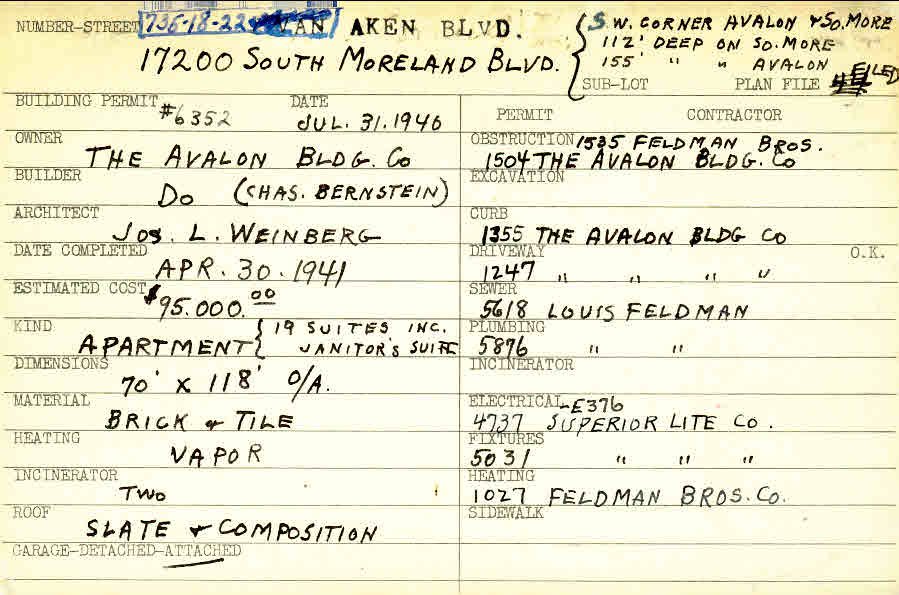 NUMBER-STREET 736-18-22 VAN AKEN BLVD.
17200 SOUTH MORELAND BLVD.
S.W. CORNER AVALON & SO. MORE
112' DEEP ON SO. MORE
155' " " AVALON
SUB-LOT PLAN FILE FILED
BUILDING PERMIT #6352 DATE JUL. 31. 1940
OWNER THE AVALON BLDG. CO
BUILDER DO (CHAS. BERNSTEIN)
ARCHITECT JOS. L. WEINBERG
DATE COMPLETED APR. 30. 1941
ESTIMATED COST $95.000.00
KIND APARTMENT { 19 SUITES INC.
JANITOR'S SUITE
DIMENSIONS 70' X 118' O/A.
MATERIAL BRICK & TILE
HEATING VAPOR
INCINERATOR TWO
ROOF SLATE & COMPOSITION
GARAGE-DETACHED-ATTACHED
PERMIT CONTRACTOR
OBSTRUCTION 1535 FELDMAN BROS.
1504 THE AVALON BLDG. CO
EXCAVATION
CURB
1355 THE AVALON BLDG CO
DRIVEWAY O.K.
1247 " " " "
SEWER
5618 LOUIS FELDMAN
PLUMBING
5876 " "
INCINERATOR
ELECTRICAL-E376
4737 SUPERIOR LITE CO.
FIXTURES
5031 " " "
HEATING
1027 FELDMAN BROS. CO.
SIDEWALK